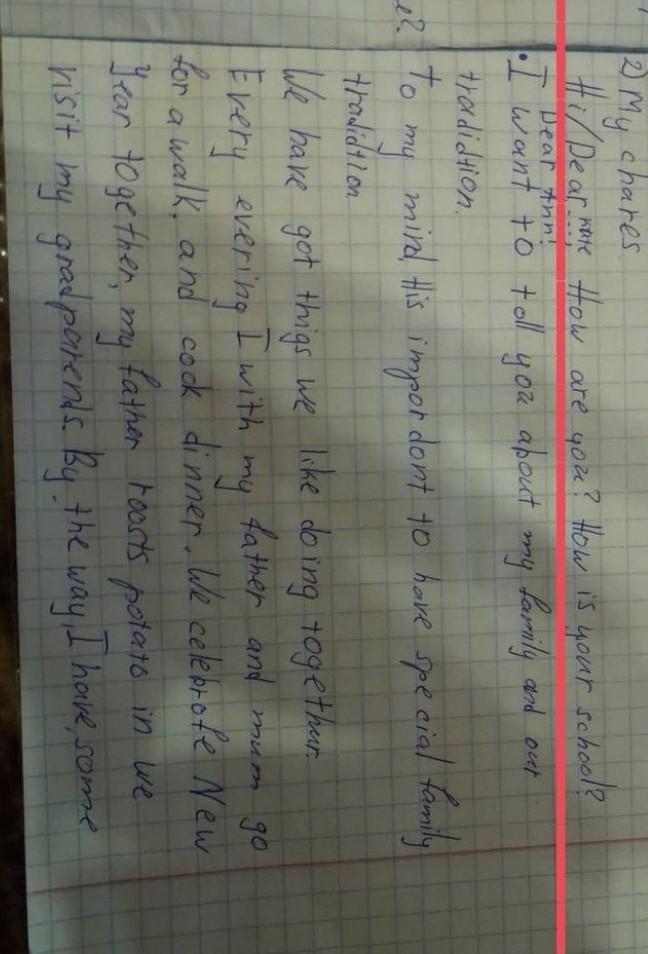 2) My chares
Hi/Dear mare How are you? How is your school?
Dear Ann!
• I want to toll you about my family and our
tradidtion.
To my mind this impordont to have special family
tradidtion
We have got thigs we like doing together.
Every evering I with my father and mum go
for a walk. and cook dinner. We celebrate New
Year together, my father roasts potato in we
visit my gradparents By. the way, I have, some
e?